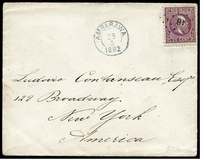 AMBARAWA
1883
Ludovic Contanseau Esqr
129 Broadway
New York
America